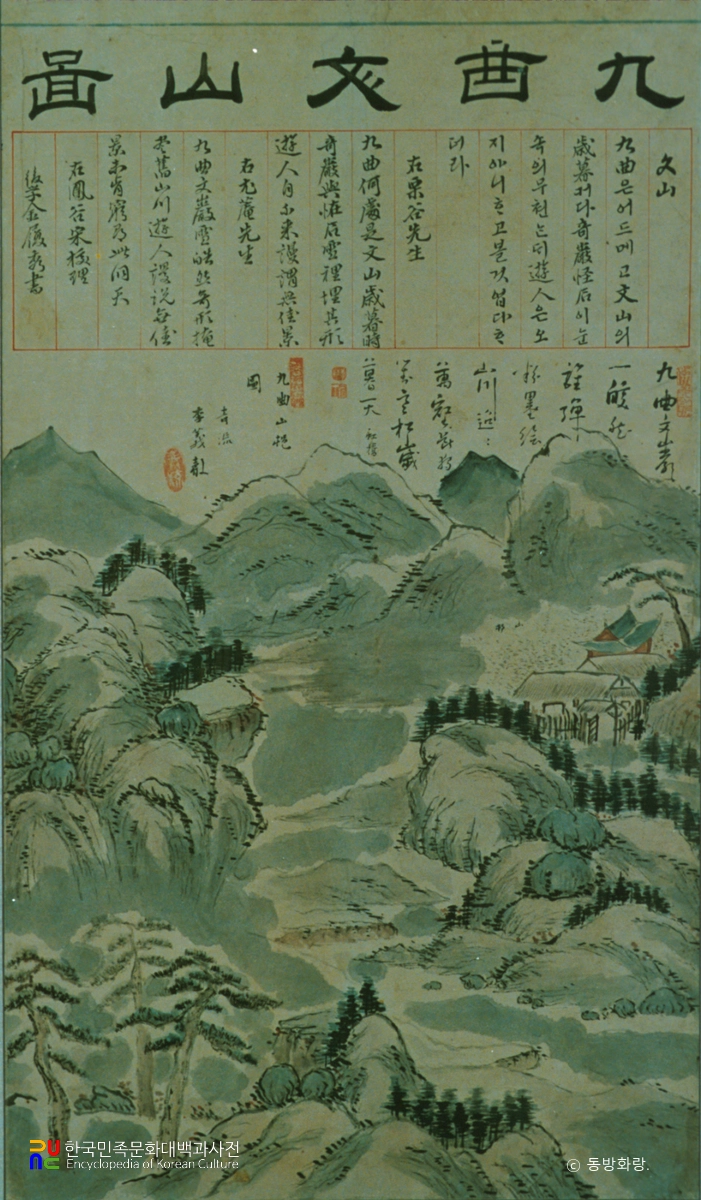 九曲文山圖
文山
九曲은어드메고文山의
歲暮커다奇巖怪石이눈
속의무쳐는더遊人은오
지아니ᄒᆞ고볼것업다ᄒᆞ
더라
右栗谷先生
九曲何處是文山歲暮時
奇巖與怪石雪裡埋其形
遊人自不來謾謂無佳景
右尤菴先生
九曲文巖雪皓然奇形掩
盡舊山川遊人謾說無佳
景未肯窮尋此洞天
右鳳谷宋校理
後學金履書
九曲文巖
山川
萬壑
九曲山
圖
李義聲
한국민족문화대백과사전
Encyclopedia of Korean Culture
© 동방화랑.